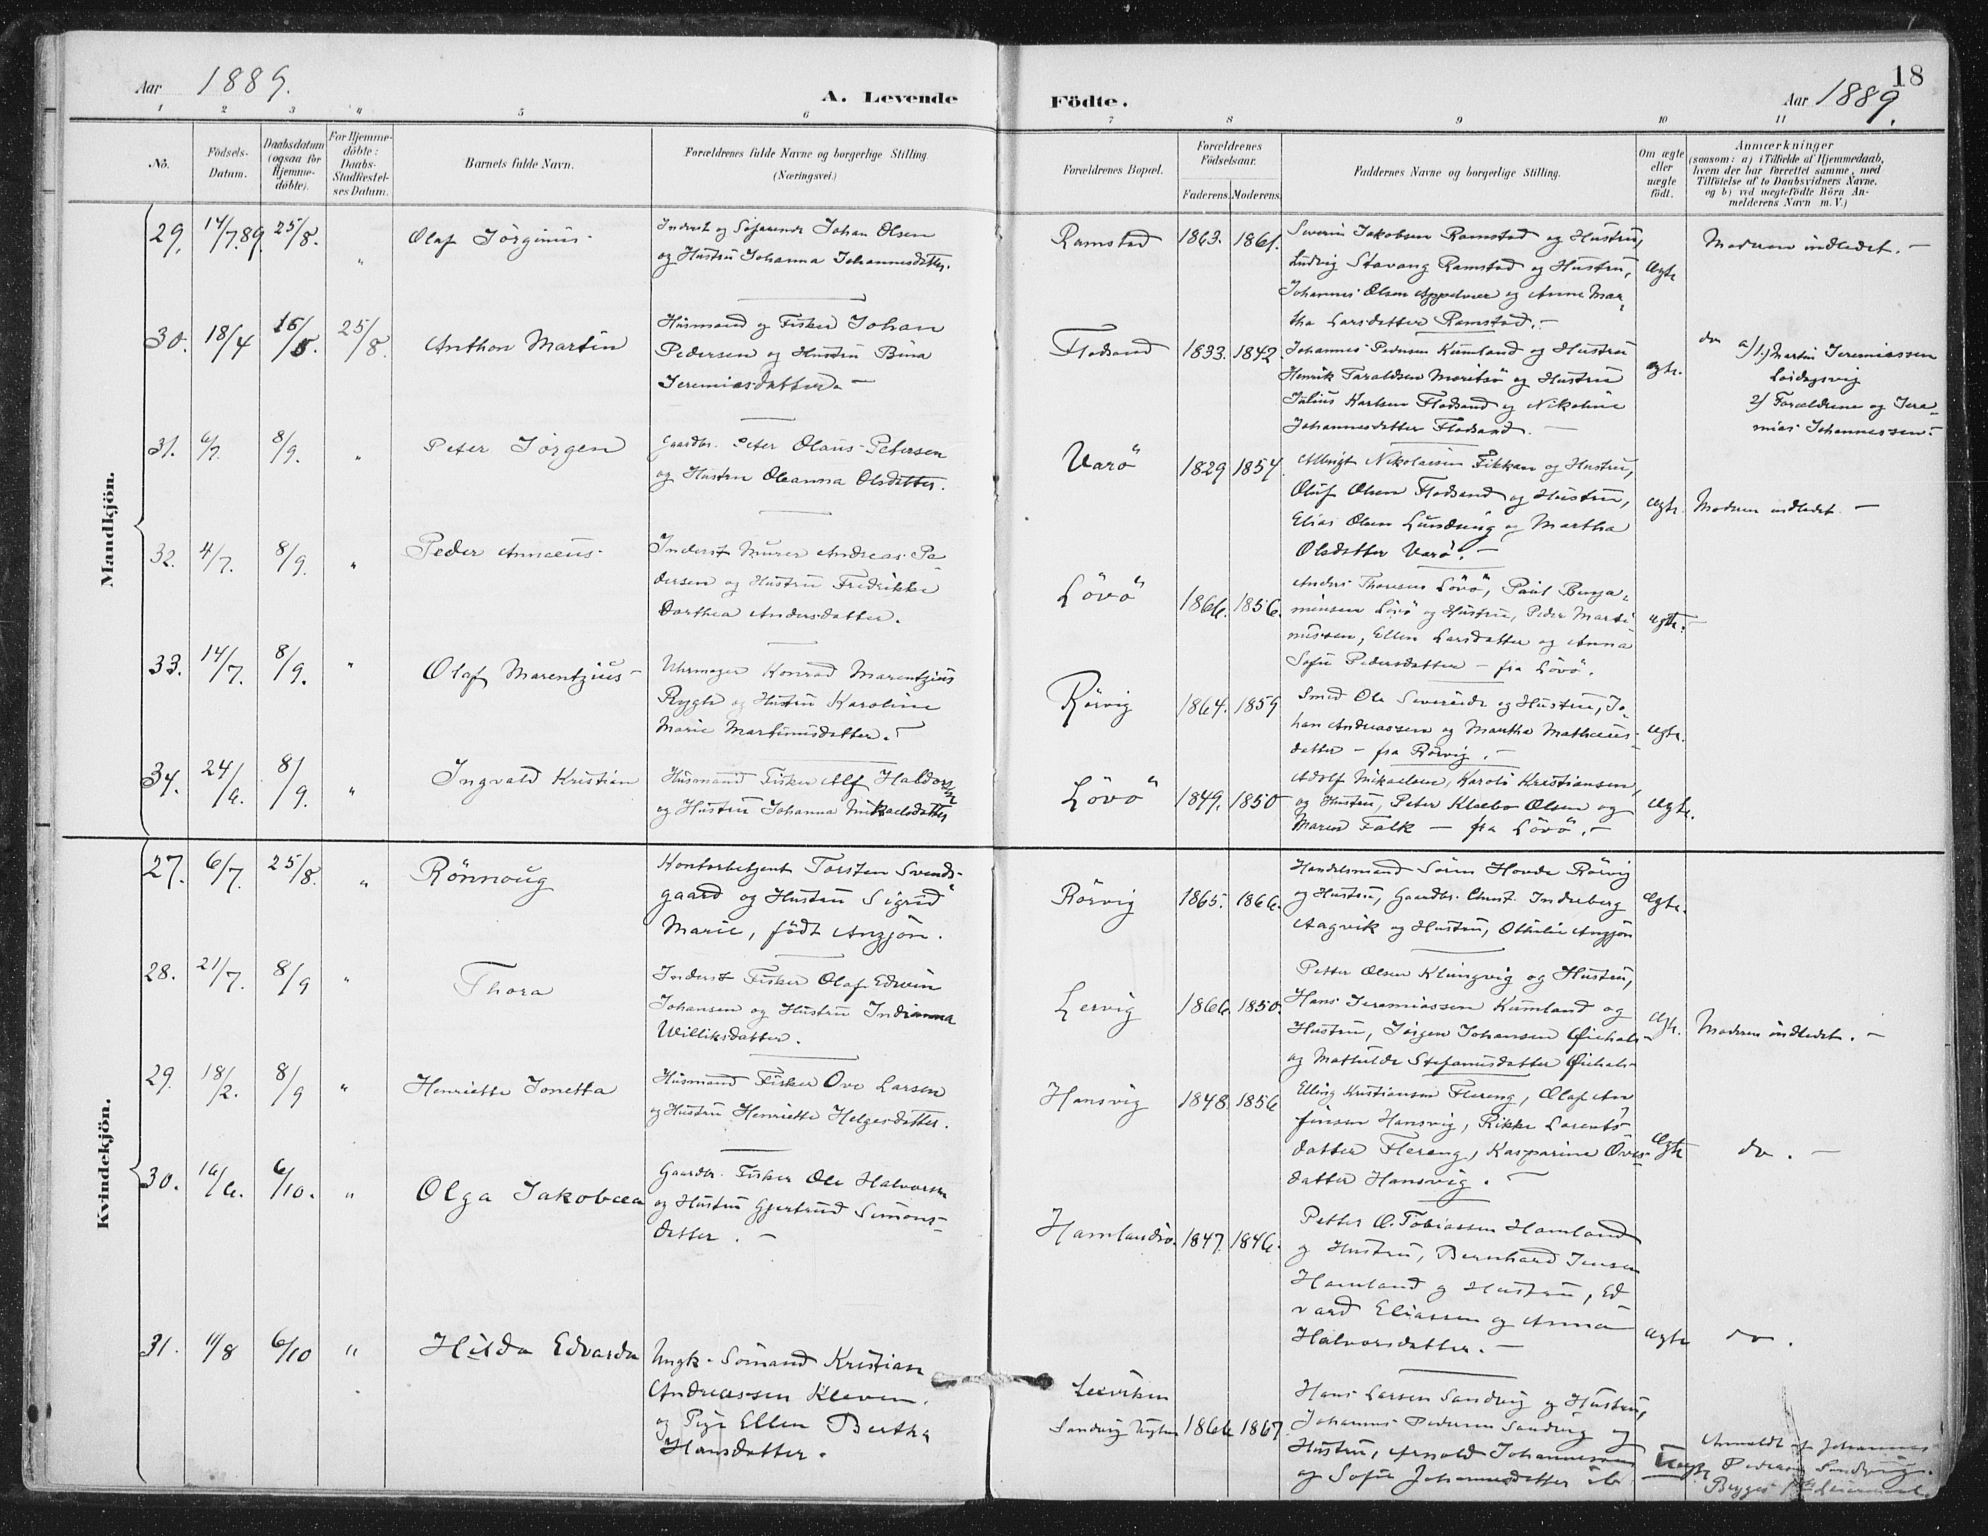 Aar 1889.
A. Levende
Födte.
Aar 1889.
18
1 2 3 4 5 6 7 8 9 10 11
No.
Födsels-
Datum.
Daabsdatum
(ogsaa for
Hjemme-
döbte).
For Hjemme-
döbte:
Daabs-
Stadfæstel-
ses Datum.
Barnets fulde Navn.
Forældrenes fulde Navne og borgerlige Stilling
(Næringsvei.)
Forældrenes Bopæl.
Forældrenes
Födselsaar.
Faderens. Moderens.
Faddernes Navne og borgerlige Stilling.
Om ægte
eller
uægte
födt.
Anmærkninger
(saasom: a) i Tilfælde af Hjemmedaab,
hvem der har forrettet samme, med
Tilföielse af to Daabsvidners Navne,
og b) ved uægtefödte Börn An-
melderens Navn m. V.)
Mandkjön.
29. 14/7.89. 25/8. " Olaf Jörginus
Inderst og Söfarende Johan Olsen
og Hustru Johanna Johannesdatter.
Ramstad 1863. 1861.
Severin Jakobsen Ramstad og Hustru,
Ludvig Stavang Ramstad og Hustru,
Johannes Olsen og Anne Mar-
tha Larsdatter Ramstad.
ægte
Moderen indledet.
30. 18/4 25/8. Anthon Martin
Husmand og Fisker Johan
Pedersen og Hustru Bina
Jeremiasdatter
Flosand 1833. 1842
Johannes Pedersen Kumland og Hustru
Henrik Taraldsen og Hustru
Julius Karlsen Flosand og Nikoline
Johannesdatter Flosand.
ægte.
do a) 1) Martin Jeremiassen
2) Forældrene og Jere-
mias Johannessen.
31. 6/7. 8/9. " Peter Jörgen
Gaardbr. Peter Olaus Petersen
og Hustru Oleanna Olsdatter.
Varö 1829 1854.
Albrigt Nikolaisen Fikkan og Hustru,
Oluf Olsen Flosand og Hustru,
Elias Olsen og Martha
Olsdatter Varö.
ægte.
Moderen indledet.
32. 4/7. 8/9. " Peder Annæus
Inderst Murer Andreas Pe-
dersen og Hustru Fredrikke
Dorthea Andersdatter.
Lövö 1866. 1856.
Anders Lövö, Paul Benja-
minsen Lövö og Hustru, Peder Marti-
nussen, Ellen Larsdatter og Anna
Sofie Pedersdatter – fra Lövö.
ægte.
33. 14/7. 8/9. " Olaf Marentzius
Uhrmager Konrad Marentzius
Rygh og Hustru Karoline
Marie Martinusdatter.
Rörvig 1864. 1859
Smed Ole Severeide og Hustru, Jo-
han Andreassen og Martha Mathæus-
datter – fra Rörvig.
ægte.
34. 24/6. 8/9. " Ingvald Kristian
Husmand Fisker Alf Haldorsen
og Hustru Johanna Mikaelsdatter
Lövö 1849. 1850
Adolf Mikaelsen, Karoli Kristiansen
og Hustru, Peter Klæbo Olsen og
Maren Falk – fra Lövö.
ægte.
Kvindekjön.
27. 6/7. 25/8. " Rönnoug
Kontorbetjent Torsten Svends-
gaard og Hustru Sigrid
Marie, födt Anzjön.
Rörvig 1865. 1866.
Handelsmand Sören Hovde Rörvig
og Hustru, Gaardbr. Christ. Indreberg
Aagvik og Hustru, Othilie Anzjön
ægte.
28. 21/7. 8/9 " Thora
Inderst Fisker Olaf Edvin
Johansen og Hustru Indianna
Williksdatter.
Lervig 1866. 1850.
Petter Olsen Klungvig og Hustru,
Hans Jeremiassen Kumland og
Hustru, Jörgen Johansen
og Mathilde Stefanusdatter
ægte.
Moderen indledet.
29. 18/2. 8/9 " Henriette Jonetta
Husmand Fisker Ove Larsen
og Hustru Henriette Helgesdatter.
Hansvig 1848. 1856
Elling Kristiansen Flereng, Olaf An
finsen Hansvig, Rikke Lorents-
datter Flereng, Kasparine Oves-
datter Hansvig.
ægte
do.
30. 16/6. 6/10. " Olga Jakobæa
Gaardbr. Fisker Ole Halvorsen
og Hustru Gjertrud Simons-
datter.
Hamlandsv. 1847. 1846.
Petter O. Tobiassen Hamland
og Hustru, Bernhard Jensen
Hamland og Hustru, Ed
vard Eliassen og Anna
Halvorsdatter.
ægte
do.
31. 11/8 6/10 " Hilda Edvarda
Ungk. Sömand Kristian
Andreassen Kleven.
og Pige Ellen Bertha
Hansdatter.
Sandvig 1866 1867.
Hans Larsen Sandvig og Hustru,
Johannes Pedersen Sandvig og
Hustru, Arnold Johannessen
og Sofie Johannesdatter
Uægte
Anmeldt af Johannes
Pedersen Sandvig.